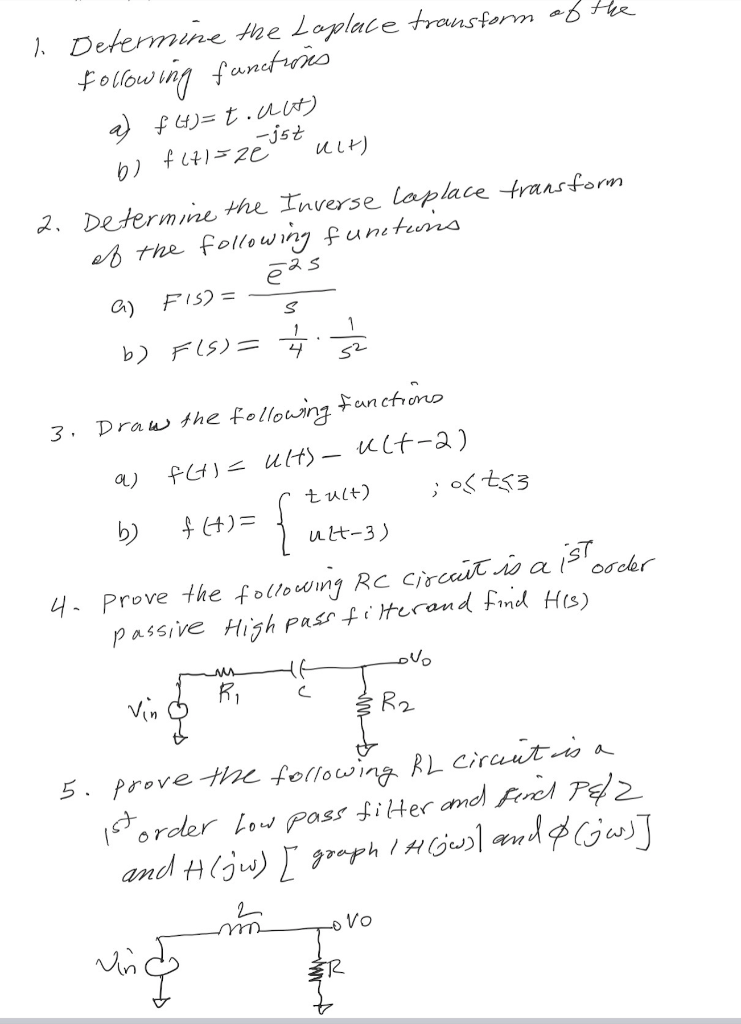 1. Determine the Laplace transform of the
following functions
a) f(t) = t . u(t)
b) f(t) = 2e^-j5t u(t)
2. Determine the Inverse laplace transform
of the following functions
a) F(s) = e^-2s / s
b) F(s) = 1/4 . 1/s^2
3. Draw the following functions
a) f(t) = u(t) - u(t-2)
b) f(t) = { t u(t) ; 0≤t≤3
u(t-3)
4. Prove the following RC circuit is a 1ST order
passive High pass filter and find H(s)
Vin R1 C Vo
R2
5. Prove the following RL circuit is a
1st order Low pass filter and find P&Z
and H(jw) [ graph |H(jw)| and φ(jw)]
Vin Vo
R